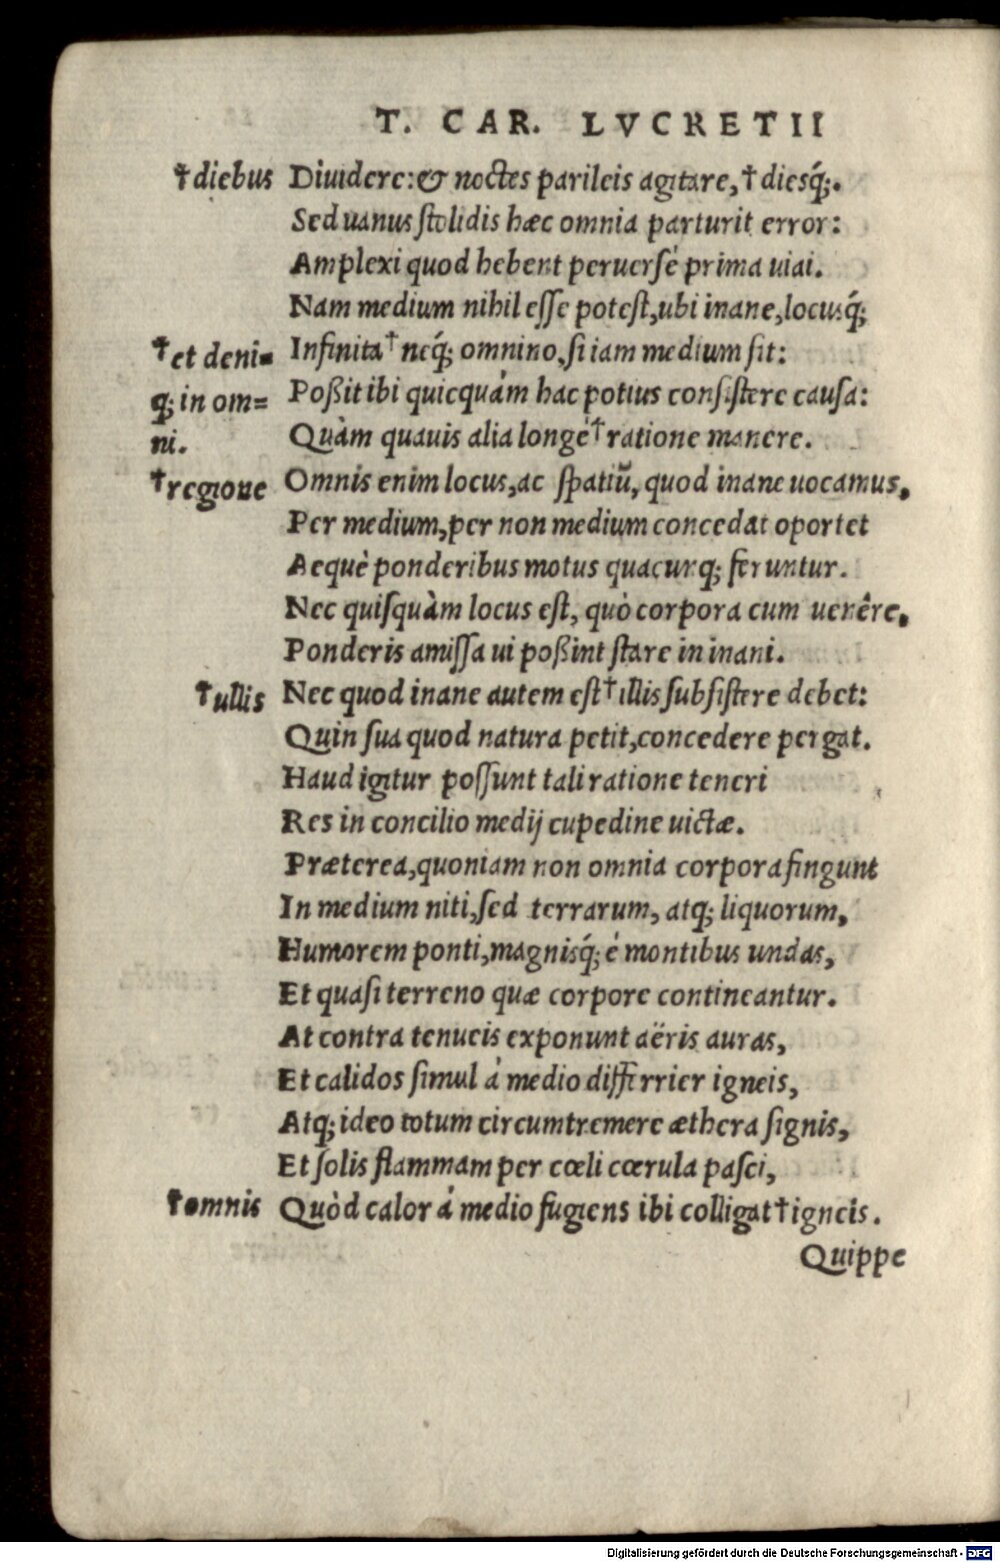 T. CAR. LVCRETII
†diebus Diuidere: & noctes parileis agitare, † diesq́;.
Sed uanus stolidis hæc omnia parturit error:
Amplexi quod hebent peruersè prima uiai.
Nam medium nihil esse potest, ubi inane, locusq́;
†et deni= Infinita † neq́; omnino, si iam medium sit:
q; in om= Poßit ibi quicquàm hac potius consistere causa:
ni. Quàm quauis alia longè † ratione manere.
†regione Omnis enim locus, ac spatiũ, quod inane uocamus,
Per medium, per non medium concedat oportet
Aequè ponderibus motus quacunq; feruntur.
Nec quisquàm locus est, quò corpora cum uenêre,
Ponderis amissa ui poßint stare in inani.
†ullis Nec quod inane autem est † illis subsistere debet:
Quin sua quod natura petit, concedere pergat.
Haud igitur possunt tali ratione teneri
Res in concilio medij cupedine uictæ.
Præterea, quoniam non omnia corpora fingunt
In medium niti, sed terrarum, atq; liquorum,
Humorem ponti, magnisq́; è montibus undas,
Et quasi terreno quæ corpore contineantur.
At contra tenueis exponunt aëris auras,
Et calidos simul à medio differrier igneis,
Atq; ideo totum circumtremere æthera signis,
Et solis flammam per cœli cœrula pasci,
†omnis Quòd calor á medio fugiens ibi colligat † igneis.
Quippe
Digitalisierung gefördert durch die Deutsche Forschungsgemeinschaft - DFG